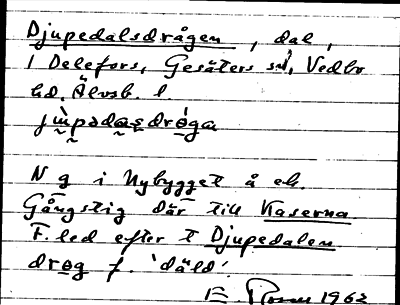 Djupedalsdrågen, dal,
i Delefors, Gesäters sn, Vedbo
hd, Älvsb. l.
N g i Nybygget å ek.
Gångstig där till Kaserna
F. led efter t Djupedalen
drog f. 'däld'.
1962